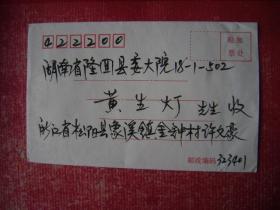 422200
贴邮票处
湖南省隆回县委大院15-1-502
黄生灯 先生 收
浙江省松阳县象溪镇金钟村许文豪
邮政编码 323401